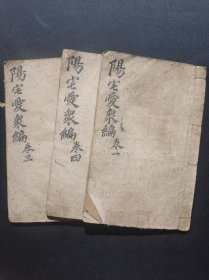 陽宅愛衆編 卷一
陽宅愛衆編 卷四
陽宅愛衆編 卷三